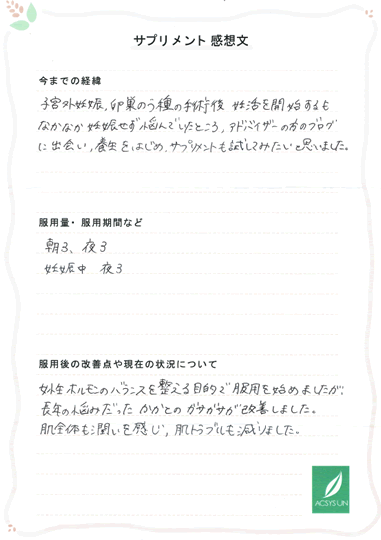 サプリメント 感想文
今までの経緯
子宮外妊娠,卵巣のう種の手術後 妊活を開始するも
なかなか妊娠せず悩んでいたところ,アドバイザーの方のブログ
に出会い,養生をはじめ,サプリメントも試してみたいと思いました。
服用量・服用期間など
朝3、夜3
妊娠中 夜3
服用後の改善点や現在の状況について
女性ホルモンのバランスを整える目的で服用を始めましたが、
長年の悩みだった かかとの ガサガサが改善しました。
肌全体も潤いを感じ,肌トラブルも減りました。
ACSYSUN